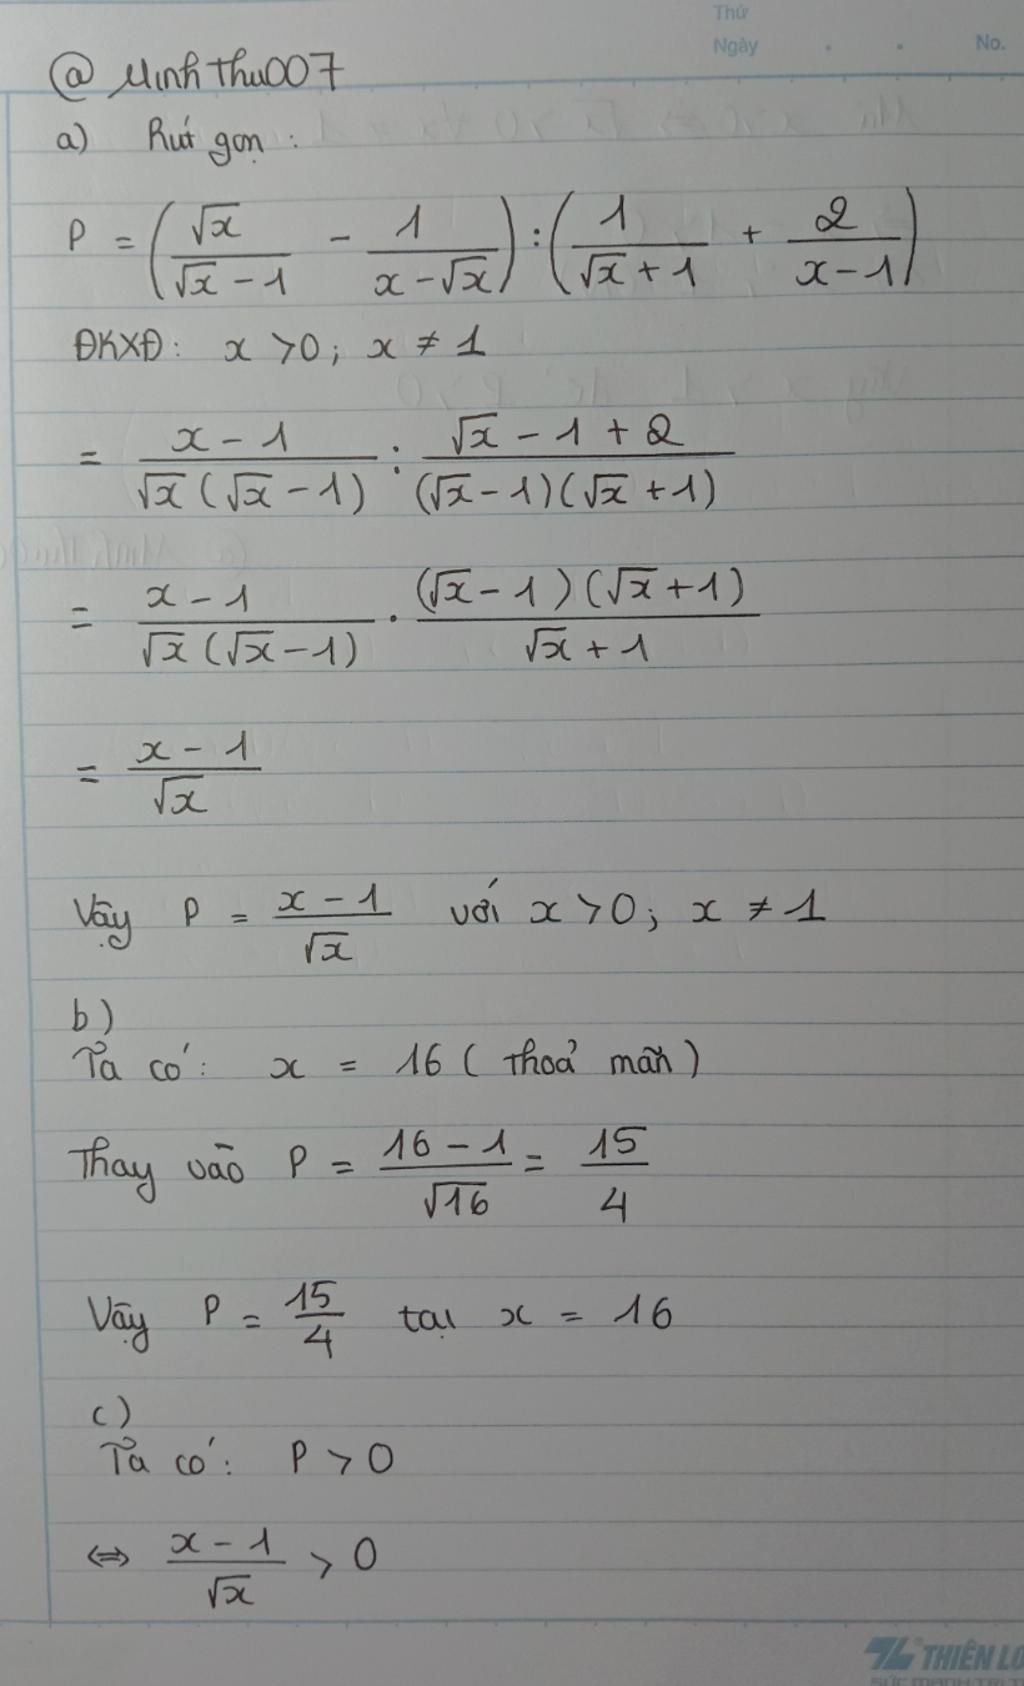 Thứ
Ngày . . No.
@ MinhThu007
a) Rút gọn :
P = (√x/(√x - 1) - 1/(x - √x)) : (1/(√x + 1) + 2/(x - 1))
ĐKXĐ: x > 0; x ≠ 1
= (x - 1)/(√x(√x - 1)) : (√x - 1 + 2)/((√x - 1)(√x + 1))
= (x - 1)/(√x(√x - 1)) . ((√x - 1)(√x + 1))/(√x + 1)
= (x - 1)/√x
Vậy P = (x - 1)/√x với x > 0; x ≠ 1
b)
Ta có: x = 16 ( thoả mãn )
Thay vào P = (16 - 1)/√16 = 15/4
Vậy P = 15/4 tại x = 16
c)
Ta có: P > 0
⇔ (x - 1)/√x > 0
THIÊN LO